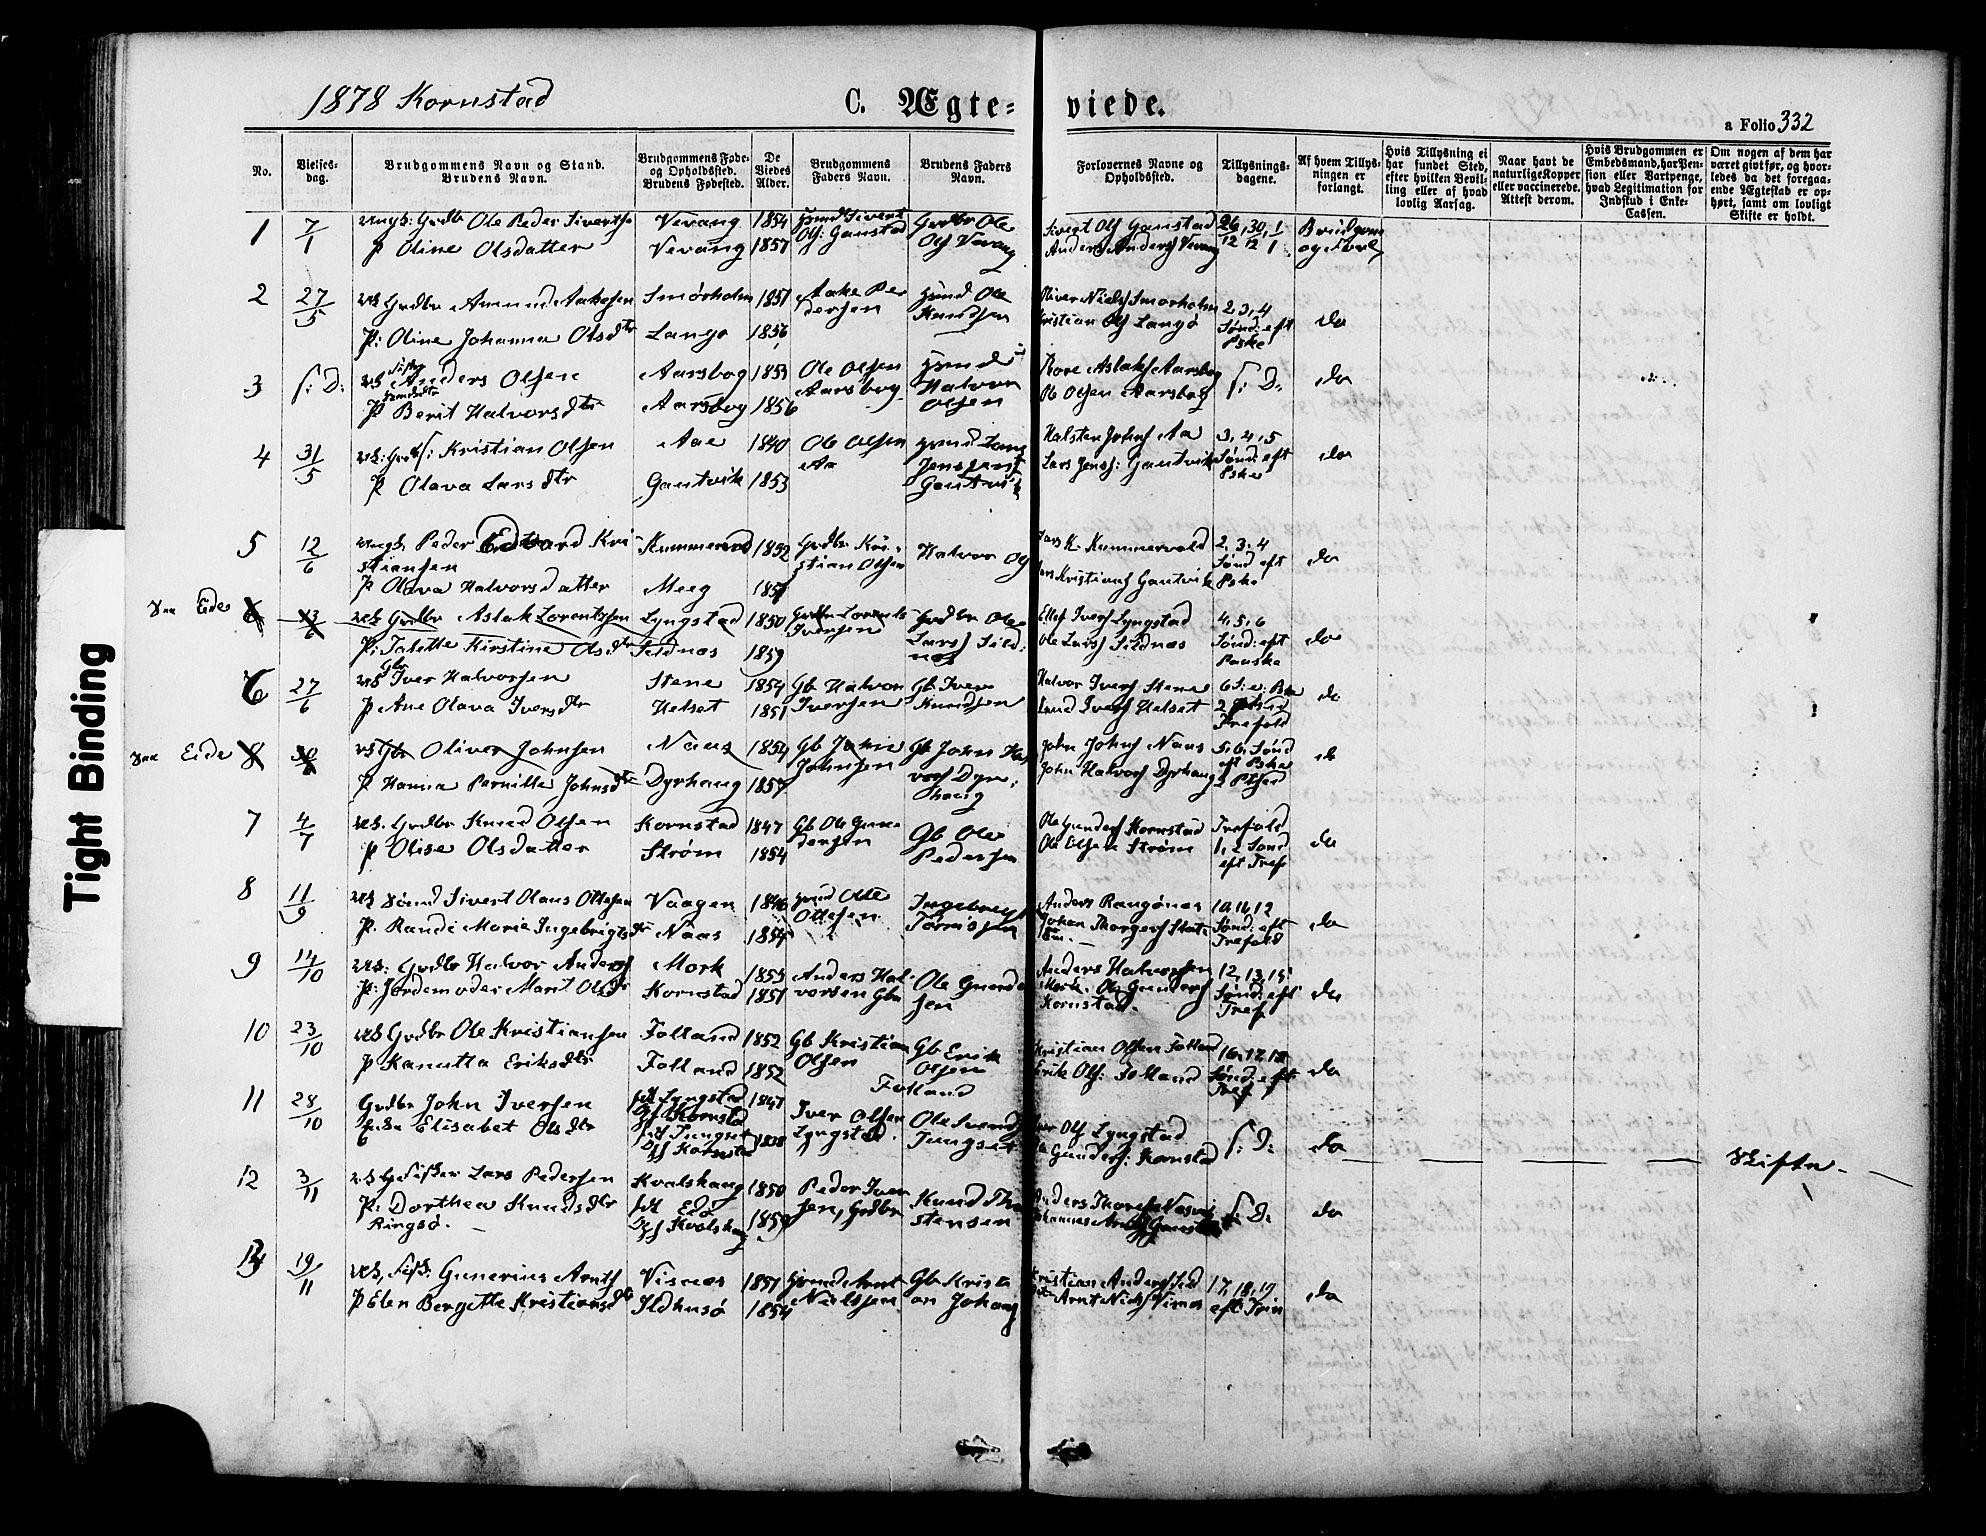 1878 Kornstad
C. Ægte=
viede.
a Folio 332
No.
Vielses-
dag.
Brudgommens Navn og Stand.
Brudens Navn.
Brudgommens Føde-
og Opholdssted.
Brudens Fødested.
De
Viedes
Alder.
Brudgommens
Faders Navn.
Brudens Faders
Navn.
Forlovernes Navne og
Opholdssted.
Tillysnings-
dagene.
Af hvem Tillys-
ningen er
forlangt.
Hvis Tillysning ei
har fundet Sted,
efter hvilken Bevil-
ling eller af hvad
lovlig Aarsag.
Naar havt de
naturlige Kopper
eller vaccinerede.
Attest derom.
Hvis Brudgommen er
Embedsmand, har Pen-
sion eller Vartpenge,
hvad Legitimation for
Indskud i Enke-
Cassen.
Om nogen af dem har
været givtfør, og hvor-
ledes da det foregaa-
ende Ægteskab er op-
hørt, samt om lovligt
Skifte er holdt.
1
7/1
Ungk: Grdbr Ole Peder Sivertsen
P Oline Olsdatter
Vevang
Vevang
1854
1857
Hmd Sivert
Ols: Gaustad
Grdbr Ole
Ols Vevang
Sivert Ols Gaustad
Anders Anders Vevang
26, 30, 1
12 12 1
Brudgom
og Forl
2
27/5
Grdbr Amund Aakesen
P: Oline Johanna Olsdtr
Smørholm
Langø
1851
1856
Aake Pe
dersen
Hmd Ole
Knudsen
Niels Smørholm
Kristian Ols Langø
2, 3, 4
Sønd: eft
Pske
do
3
s: D:
Anders Olsen
P Berit Halvorsdtr
Aarsbog
Aarsbog
1853
1856
Ole Olsen
Aarsbog
Hmd
Halvor
Olsen
Tore Aslaks Aarsbog
Ole Olsen Aarsbog
s: D:
do
4
31/5
Kristian Olsen
P Olava Larsdtr
Aae
Gautvik
1840
1853
Ole Olsen
Aa
Hmd Lars
Jenssen
Gautvik
Halsten Johns Aa
Lars Jenss: Gautvik
3, 4, 5
Sønd: eft
Pske
do
5
12/6
Ungk Peder Edvard Kri
stiansen
P Olava Halvorsdatter
Kummervold
Meeg
1852
1857
Grdbr Kri-
stian Olsen
Halvor Ols
Lars K. Kummervold
Lars Kristians Gautvik
2, 3, 4
Sønd eft
Pske
do
Eide
13/6
Grdbr Aslak Lorentzsen
P: Tabette Kirstine Olsdtr
Lyngstad
Sildnæs
1850
1859
Grdbr Lorents
Iversen
Grdbr Ole
Lars Sild:
næs
Ellef Ivers Lyngstad
Ole Lars Sildnæs
4, 5, 6
Sønd: eft
Paaske
do
6
27/6
Gbr
Iver Halvorsen
P Ane Olava Iversdtr
Stene
Helset
1854
1851
Gb Halvor
Iversen
Gb Iver
Knudsen
Halvor Ivers Stene
Knud Ivers Helset
Trefold
do
Eide
8
Gbr Oliver Johnsen
P Hanna Pernille Johnsdtr
Naas
Dyrhaug
1854
1857
Gb John
Johnsen
Gb John Hal
vors Dyr:
haug
John Johns Naas
John Halvors Dyrhaug
5, 6, Sønd
eft Pske
do
7
4/7
Grdbr Knud Olsen
P Olise Olsdatter
Kornstad
Strøm
1847
1854
Gb Ole Gun-
dersen
Gb Ole
Pedersen
Ole Gunders Kornstad
Ole Olsen Strøm
Trefold
1, 2 Sønd
eft Tref
do
8
11/9
Sivert Olaus Ottesen
P. Randi Marie Ingebrigtsdtr
Vaagen
Naas
1846
1854
Hmd Ole
Ottesen
Ingebrigt
Tørrissen
Anders Rangønæs
Johan Thorgers Stats
10, 11, 12
Sønd: eft
Trefold
do
9
14/10
Grdbr Halvor Anders
P: Jordemoder Marit Olsdtr
Mork
Kornstad
1853
1851
Anders Hal-
vorsen Gbr
Ole Gunder
sen
Anders Halvorsen
Mork. Ole Gunders
Kornstad.
12, 13, 15
Sønd: eft
Tref
do
10
23/10
Grdbr Ole Kristiansen
P Kanutta Eriksdtr
Folland
Folland
1852
1852
Gb Kristian
Olsen
Gb Erik
Olsen
Folland
Kristian Olsen Folland
Erik Ols: Folland
16, 17, 18
Sønd: eft
Tref
do
11
28/10
Grdbr John Iversen
Enke Elisabet Olsdtr
fdt Lyngstad
Ops Kornstad
fdt Tungset
Ops Kornstad
1847
1838
Iver Olsen
Lyngstad.
Ole Svends
Tungset
Iver Ols Lyngstad
Gunders: Kornstad
s: D:
do
Skifte
12
3/11
Lars Pedersen
P: Dorthea Knudsdtr
Ringsø.
Kvalshaug
fdt Edø
Ops Kvalshaug
1850
1859
Peder Iver
sen, Grdbr
Knud Tho
stensen
s: D:
do
13
19/11
Gunerius Arnts
P Elen Bergette Kristiansdtr
Visnæs
Ildhusø
1851
1854
Hmd Arnt
Nielssen
Gb Kristi
an Johans
Kristian Anders
Arnt Niels Visnæs
17, 18, 19
eft Trin
do
Tight Binding